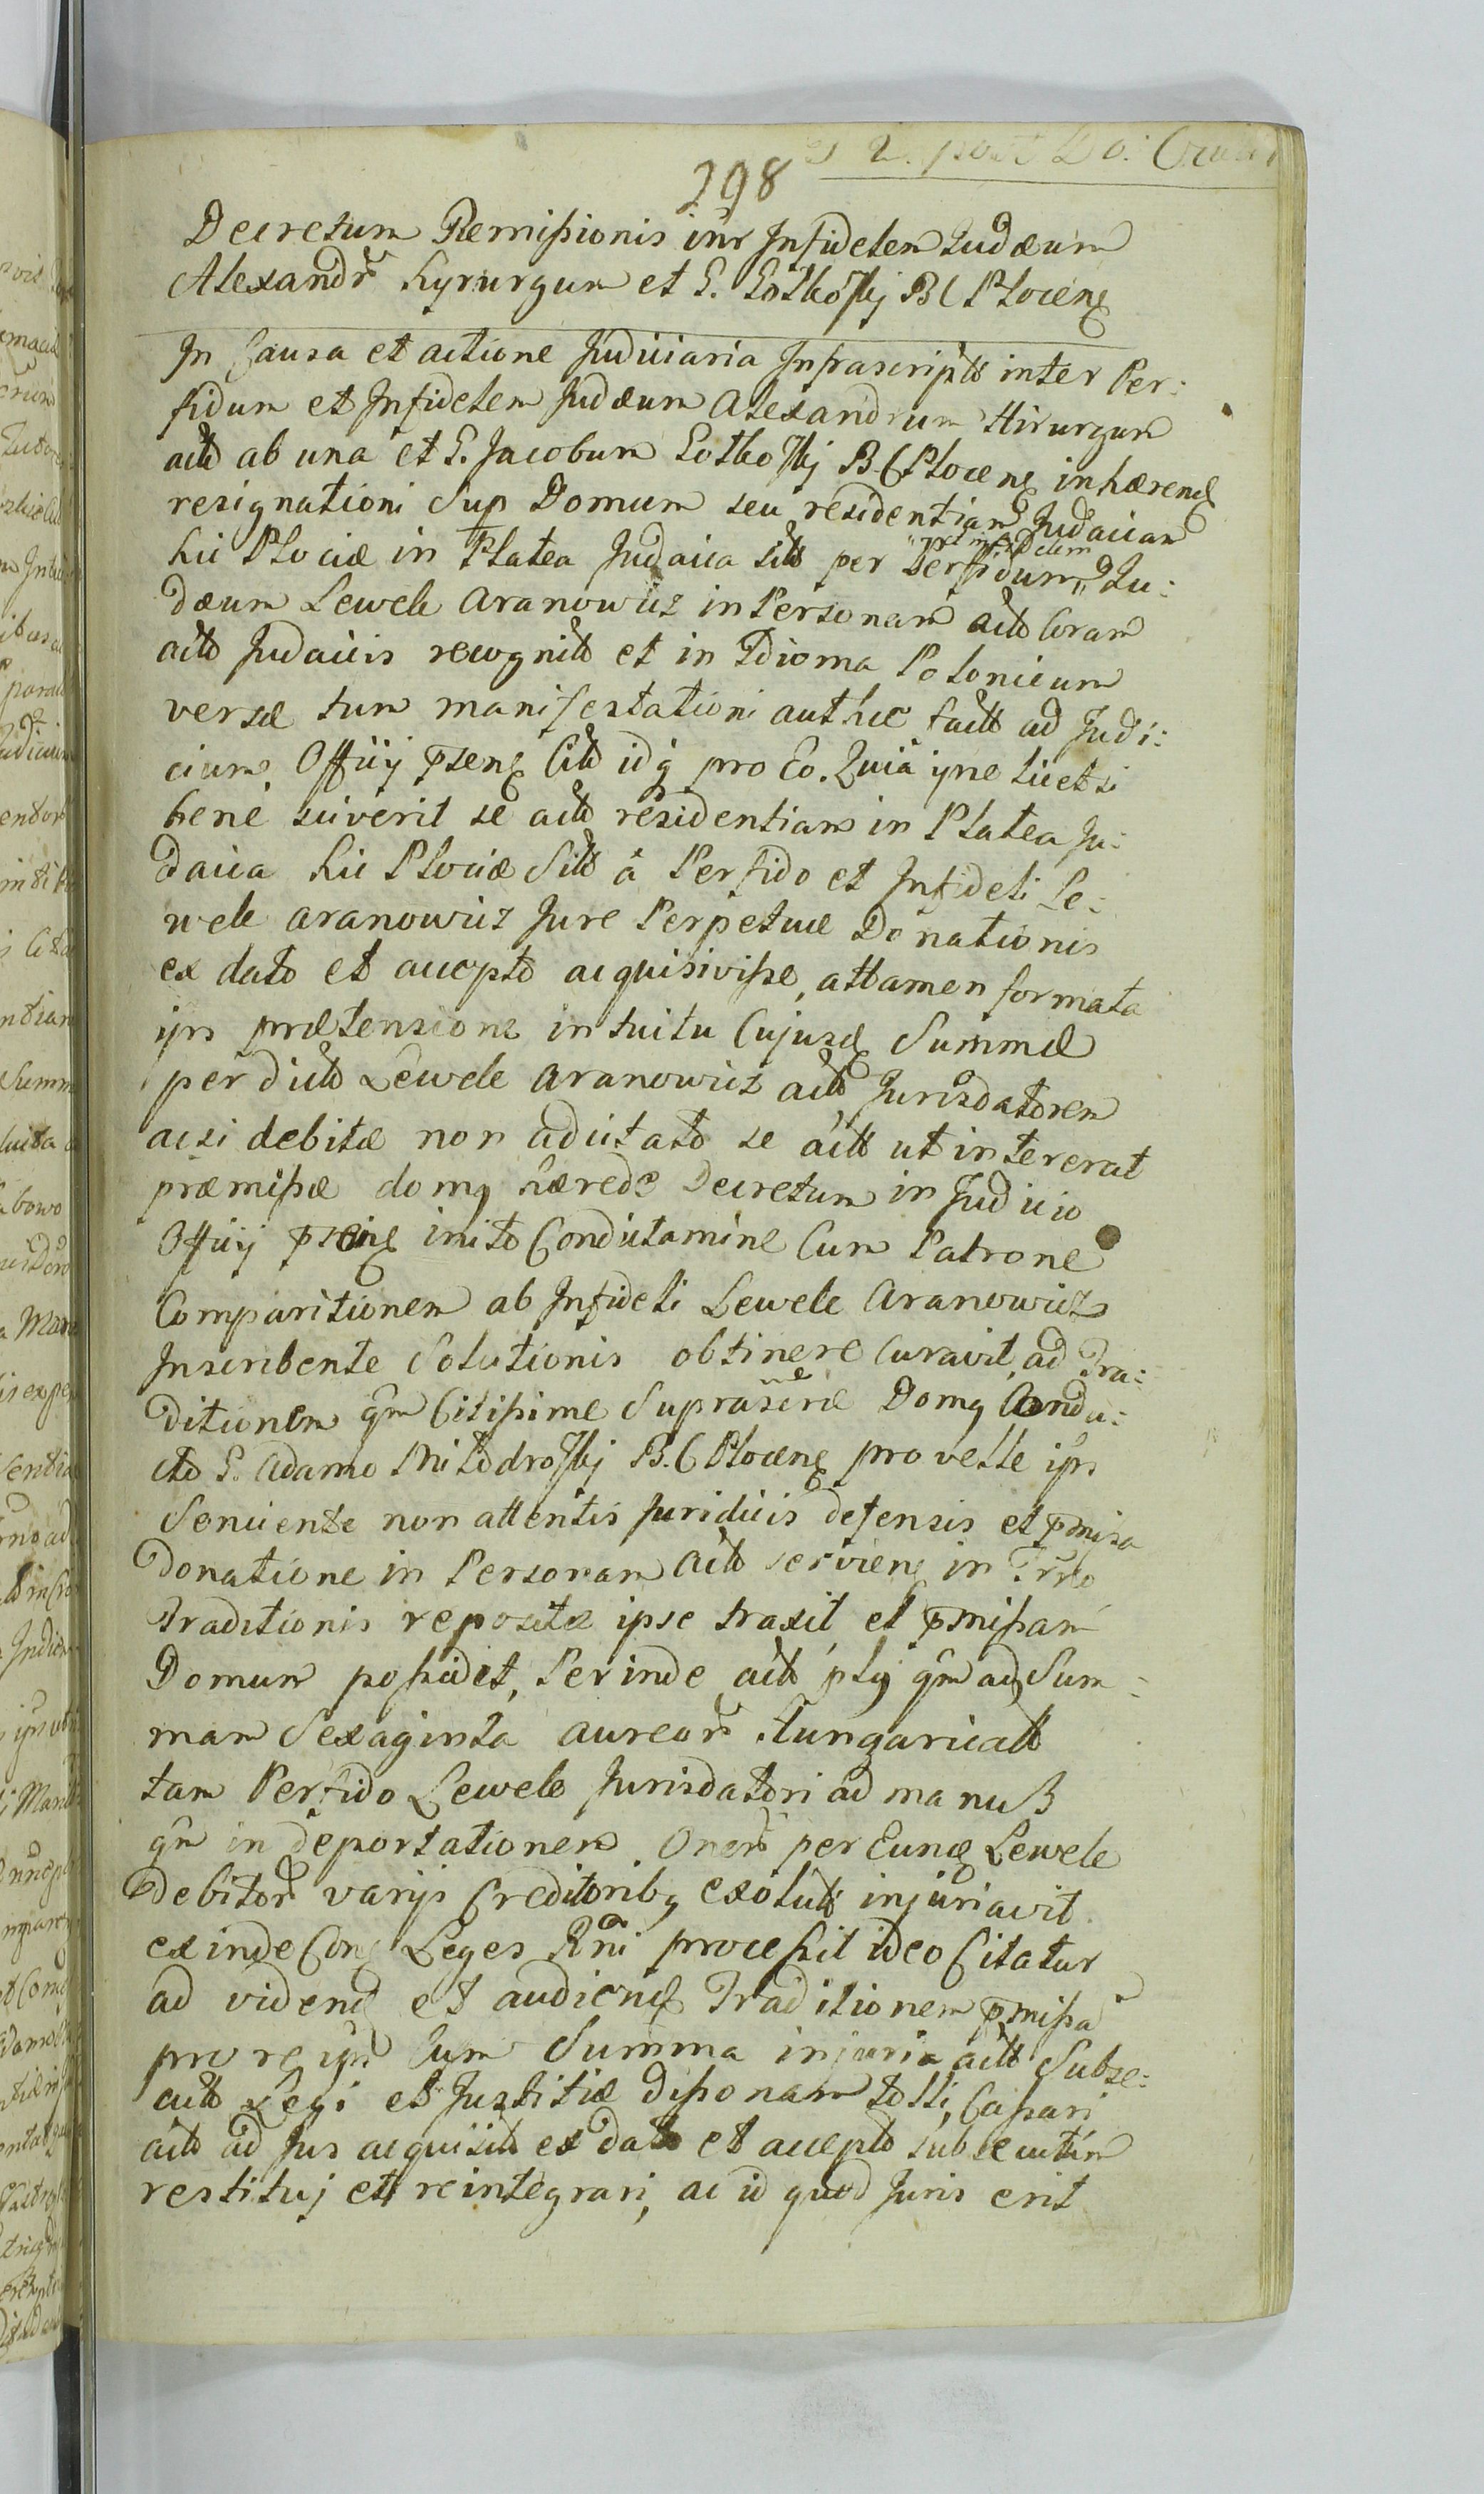 298
Decretum Remissionis inr Infidelem Judæum
Alexandr Kyrurgum et G. Kotkoskj B C Plocenꝭ
In Causa et actione Judiciaria Infrascriptt inter Per:
fidum et Infidelem Judæum Alexandrum Hirurgum
actt ab una et G. Jacobum Kotkoskj B. C Plocenꝭ inhærendꝭ
resignationi Sup Domum seu residentiam Judaicam
hic Plociæ in Platea Judaica sitt per Perfidum et infidelem Ju:
dæum Lewek Aranowicz in Personam actt Coram
actt Judaicis recognitt et in Idioma Polonicum
versæ tum manifestationi authce factt ad Judi:
cium Officij pñsenꝭ Citt idq pro Eo. Quia ipne licet si
bene sciverit se actt residentiam in Platea Ju:
daica hic Plociæ Sitt à Perfido et Infideli Le:
wek Aranowicz Jure Perpetuæ Donationis
ex dato et accepto acquisivisse, attamen formata
ipr prætensione intuitu Cujusdꝭ Summæ
per dictt Lewek Aranowicz actt Jurisdatorem
acsi debitæ non adcitato se actt ut intererat
præmissæ domq hærede Decretum in Judicio
Officij inito Condictamine Cum Patrone
Comparitionem ab Infideli Lewek Aranowicz
Inscribente Solutionis obtinere Curavit, ad Tra:
ditionem qm Citissime Suprascriæ Domq Condu:
cto G. Adamo B. C Plocenꝭ pro velle ipr
Senciente non attentis Juridicis defensis et pmissa
Donatione in Personam actt servienꝭ in
Traditionis reposita ipse traxit et pmissam
Domum possidet, Perinde actt plq qm ad Sum:
mam Sexaginta aureor Hungaricatt
tam Perfido Lewek Jurisdatori ad manus
qm in deportationem Oner per Eundꝭ Lewek
Debitor varijs Creditoribq exolutt injuriavit
exinde Conꝭ Leges Rñi processit ideo Citatur
ad videndꝭ et audiendꝭ Traditionem pmissa
pro re ipr Cum Summa injuria actt Subse:
cutt Legi et Justitiæ dissonam tolli, Cassari
actt ad Jus acquisitt ex dato et accepto subsecutum
restituj et reintegrari, ac id quod Juris erit